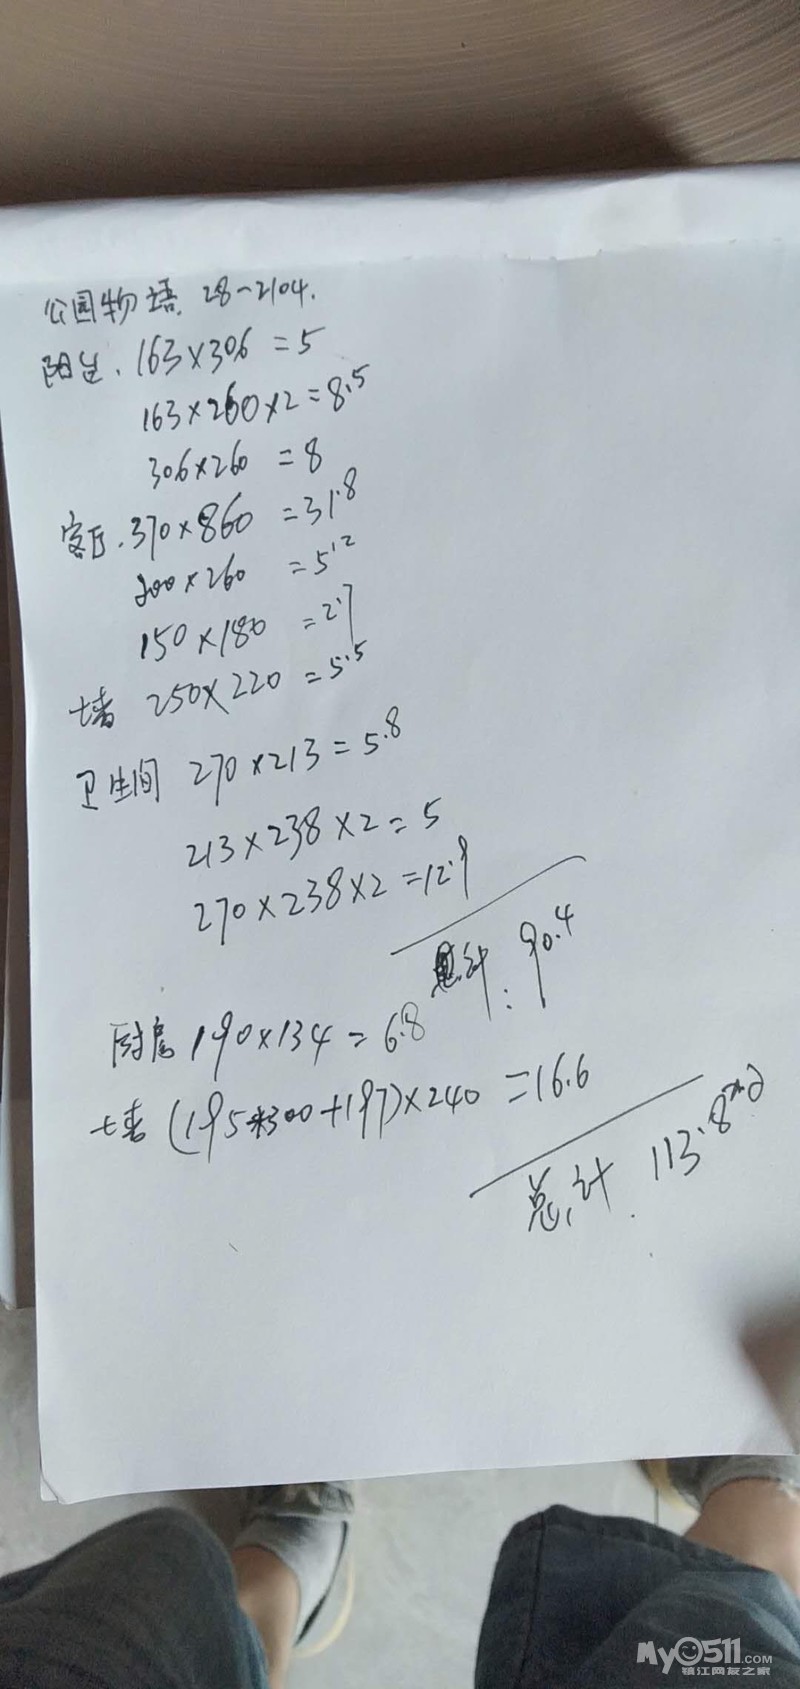 公园物语 28-2104.
阳台. 163×306 =5
163×260×2=8.5
306×260 =8
客厅. 370×860 =31.8
200×260 =5.2
150×180 =2.7
墙 250×220 =5.5
卫生间 270×213=5.8
213×238×2=5
270×238×2=12.9
总计: 90.4
厨房 190×134=6.8
墙 (195+300+197)×240 =16.6
总计. 113.8m2
My0511.com
镇江网友之家